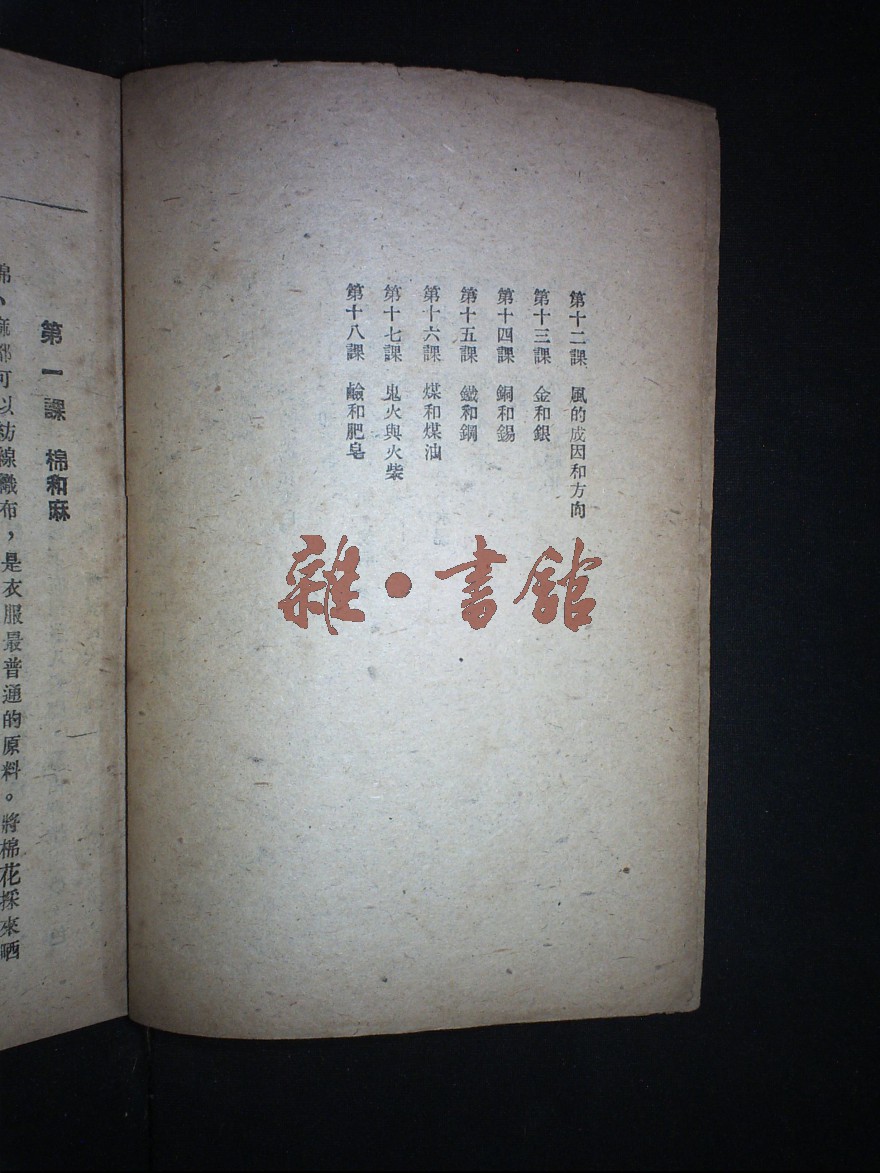 第十二課 風的成因和方向
第十三課 金和銀
第十四課 銅和錫
第十五課 鐵和鋼
第十六課 煤和煤油
第十七課 鬼火與火柴
第十八課 鹼和肥皂
雜·書館
第一課 棉和麻
棉、麻都可以紡線織布，是衣服最普通的原料。將棉花採來晒